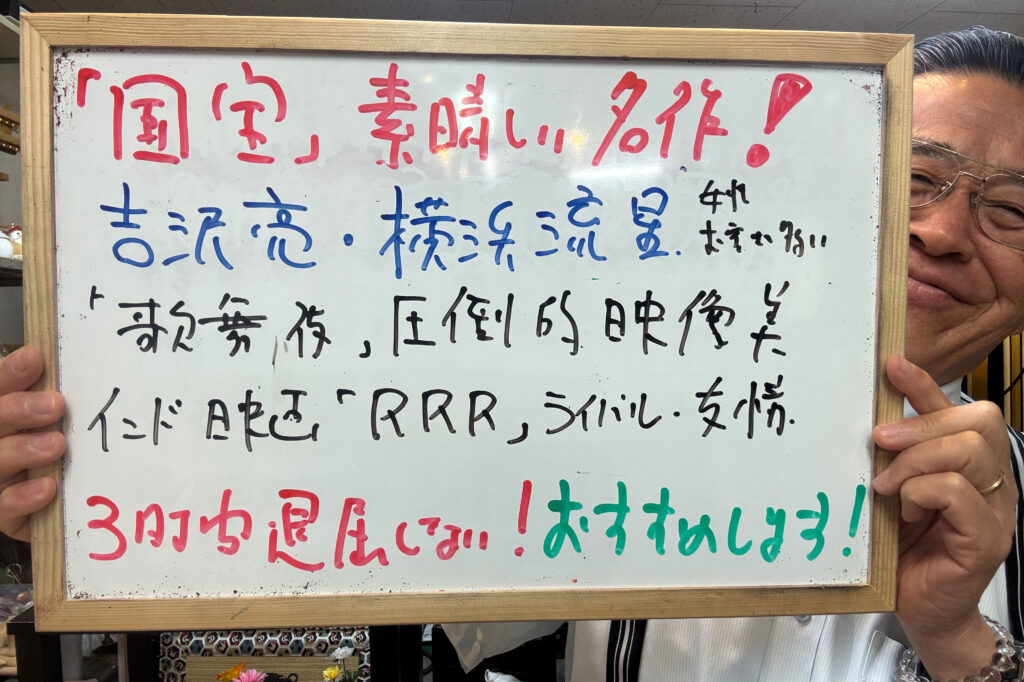 「国宝」素晴しい名作！
吉沢亮・横浜流星.
「歌舞伎」圧倒的映像美
インド映画「RRR」ライバル・友情.
3時間退屈しない！おすすめします！